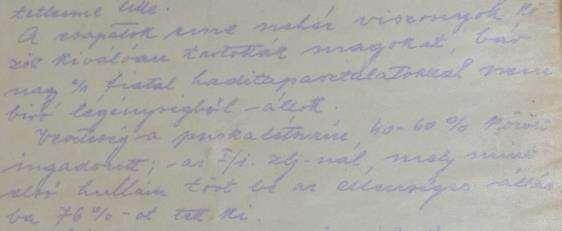 tettünk volna.
A csapatok eme nehéz viszonyok kö
zött kiválóan tartották magokat, bár
nagy % fiatal haditapasztalatokkal nem
biró legénységből állott.
Veszteség a puskalétszám 40-60 % között
ingadozott; az I/1. zlj.-nál, mely mint
első hullám tört be az ellenséges állás
ba 76%-ot tett ki.